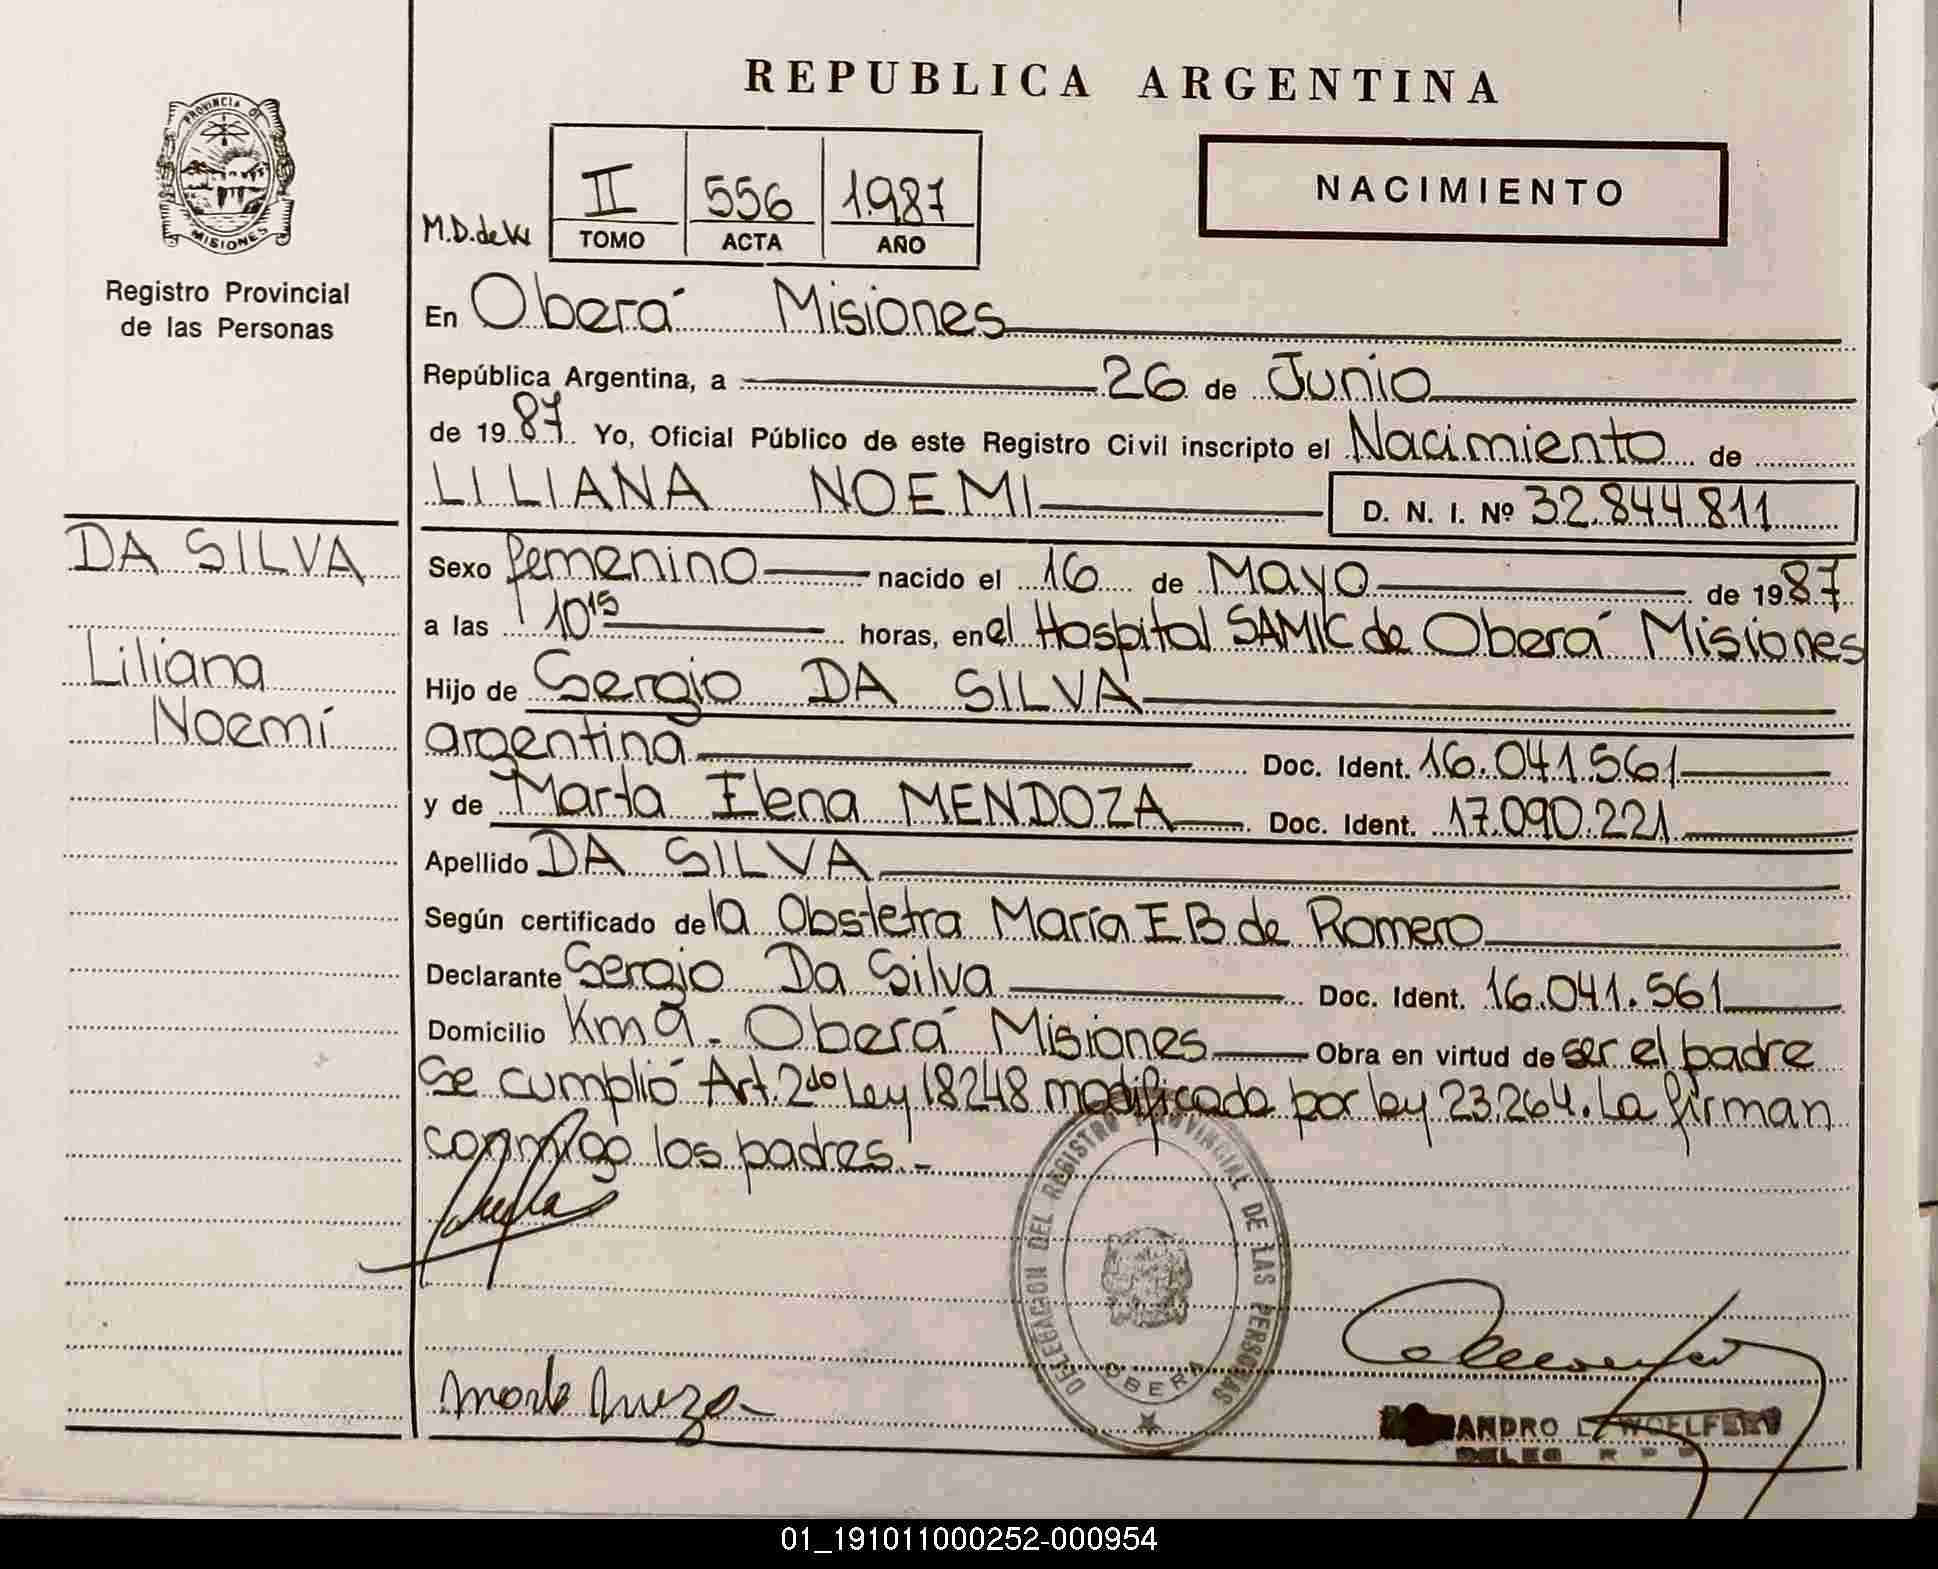 REPUBLICA ARGENTINA
PROVINCIA DE
MISIONES
Registro Provincial
de las Personas
NACIMIENTO
II 556 1.987
M.D.de
TOMO ACTA AÑO
En Oberá Misiones
República Argentina, a 26 de Junio
de 1987 Yo, Oficial Público de este Registro Civil inscripto el Nacimiento de
LILIANA NOEMI D. N. I. Nº 32.844.811
DA SILVA
Liliana
Noemí
Sexo femenino nacido el 16 de Mayo de 1987
a las 10 15 horas, en el Hospital SAMIC de Oberá Misiones
Hijo de Sergio DA SILVA
argentina Doc. Ident. 16.041.561
y de Marta Elena MENDOZA Doc. Ident. 17.090.221
Apellido DA SILVA
Según certificado de la Obstetra María E B de Romero
Declarante Sergio Da Silva Doc. Ident. 16.041.561
Domicilio Km 9. Oberá Misiones Obra en virtud de ser el padre
Se cumplió Art. 2do Ley 18248 modificada por ley 23.264. La firman
conmigo los padres.-
DELEGACION DEL REGISTRO PROVINCIAL DE LAS PERSONAS
OBERA
ANDRO L.
DELEG R P P
01_191011000252-000954